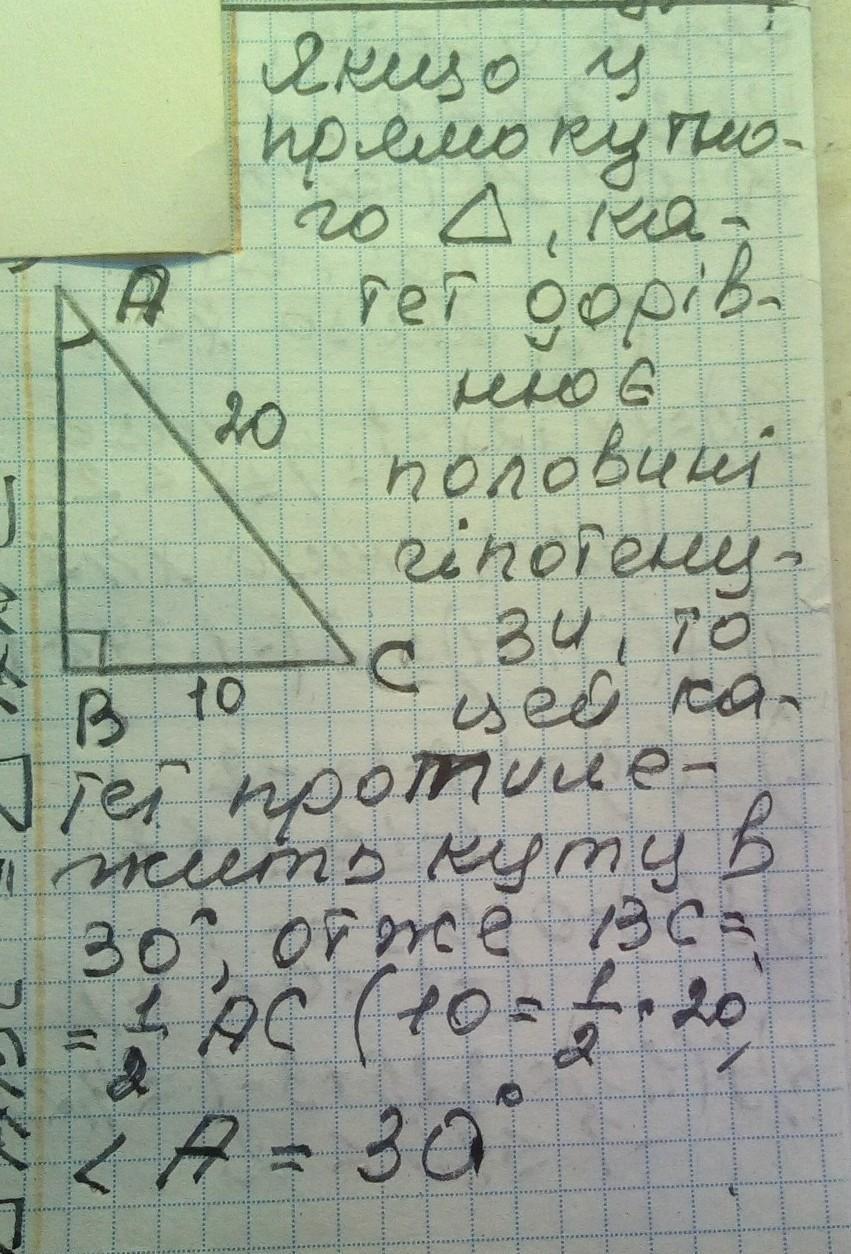 Якщо у
прямокутно-
го △, ка-
тет дорів-
нює
половині
гіпотену-
зи, то
цей ка-
тет протиле-
жить куту в
30°, отже BC=
= 1/2 AC (10 = 1/2 · 20,
< A = 30°
A
20
B 10 C